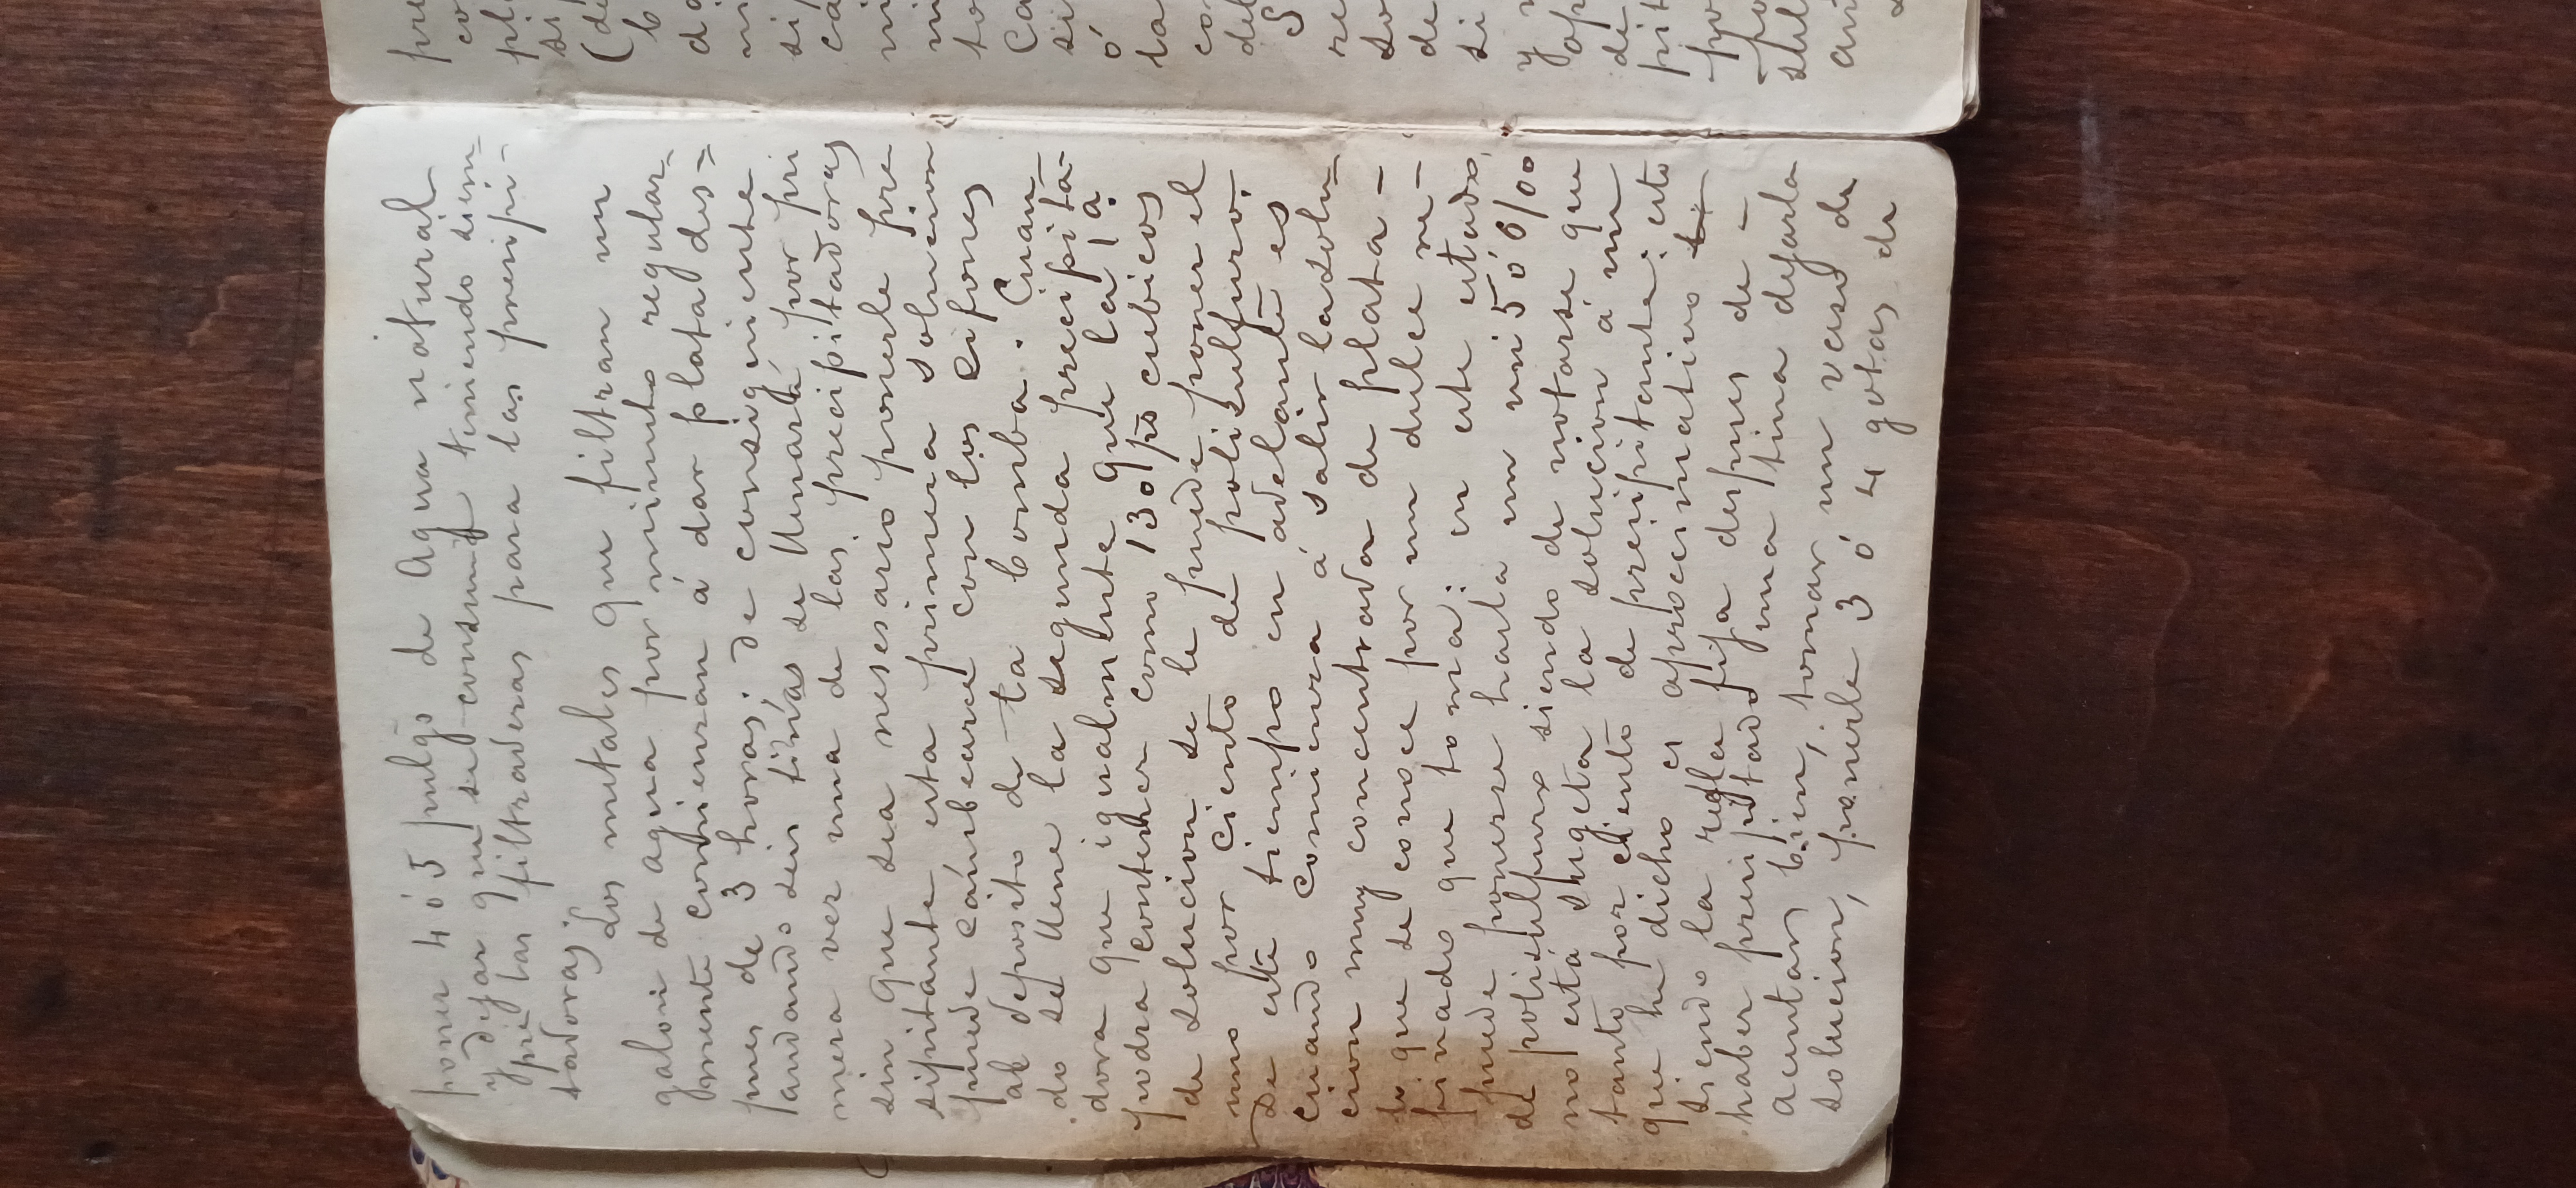 poner 4 ó 5 pulgs de Agua natural
y dejar que se consuma teniendo siem-
pre las filtraderas para las presipi-
tadoras;
Los metales que filtran un
galon de agua por minuto regular-
mente comienzan á dar plata des-
pues de 3 horas; de consiguiente
andando seis tinas se llenará por pri
mera ves una de las precipitadoras
sin que sea nesesario ponerle pre
sipitante esta primera solucion
puede cambearce con los Cifones
al deposito de la bomba. Cuan-
do se llene la segunda precipita-
dora que igualmente que la 1a.
podra contener como 130 ps cubicos
de solucion se le puede poner el
uno por ciento de polisulfuro.
De este tiempo en adelante es
cuando comienza á salir la solu-
cion muy concentrada de plata -
lo que se conose por un dulce re-
finado que toma; en este estado,
puede ponerse hasta un uni 50 0/00
de polisulfuro siendo de notarse que
no está sugeta la solucion á un
tanto por ciento de presipitante; esto
que he dicho es aprocsimativo
siendo la regla fija despues de -
haber presipitado una tina dejarla
acentar bien, tomar un vaso de
solucion, ponerle 3 ó 4 gotas de